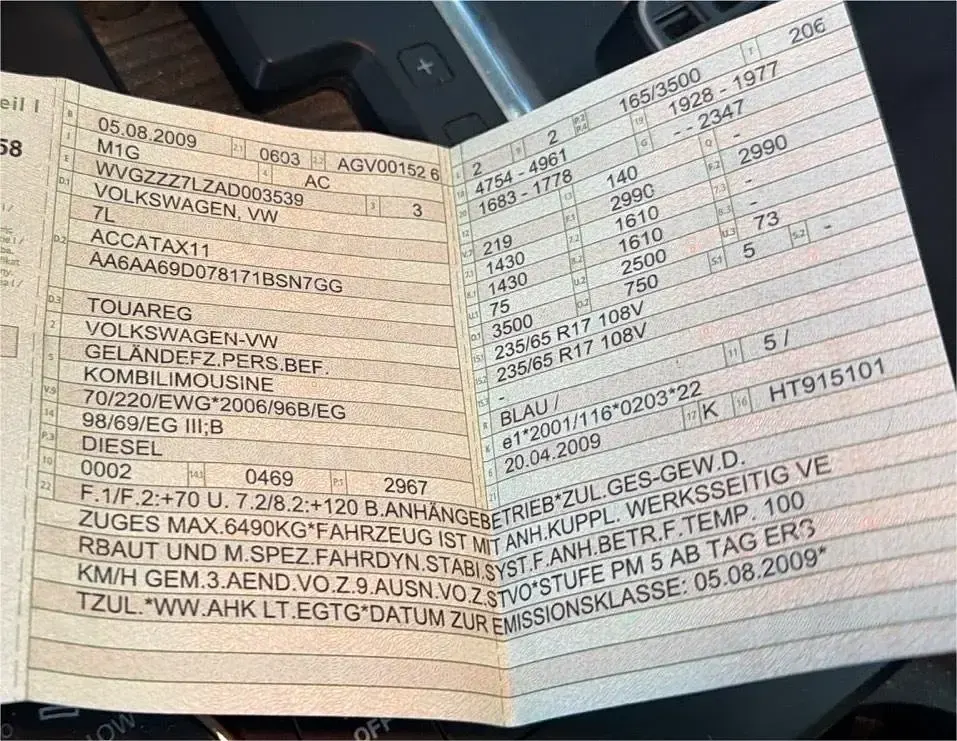 eil I
58
B 05.08.2009 2.1 0603 2.2 AGV00152 6
J M1G 4 AC
E WVGZZZ7LZAD003539 3 3
D.1 VOLKSWAGEN, VW
7L
D.2 ACCATAX11
AA6AA69D078171BSN7GG
D.3 TOUAREG
2 VOLKSWAGEN-VW
5 GELÄNDEFZ.PERS.BEF.
KOMBILIMOUSINE
V.9 70/220/EWG*2006/96B/EG
14 98/69/EG III;B
P.3 DIESEL
10 0002 14.1 0469 P.1 2967
L 2 9 2 P.2 P.4 165/3500 T 206
18 4754 - 4961 19 1928 - 1977
20 1683 - 1778 G - - 2347
12 13 140 Q -
V.7 219 F.1 2990 F.2 2990
7.1 1430 7.2 1610 7.3 -
8.1 1430 8.2 1610 8.3 -
U.1 75 U.2 2500 U.3 73
O.1 3500 O.2 750 S.1 5 S.2 -
15.1 235/65 R17 108V
15.2 235/65 R17 108V
15.3 -
R BLAU / 11 5 /
K e1*2001/116*0203*22
6 20.04.2009 17 K 16 HT915101
21
22 F.1/F.2:+70 U. 7.2/8.2:+120 B.ANHÄNGEBETRIEB*ZUL.GES-GEW.D.
ZUGES MAX.6490KG*FAHRZEUG IST MIT ANH.KUPPL. WERKSSEITIG VE
RBAUT UND M.SPEZ.FAHRDYN.STABI.SYST.F.ANH.BETR.F.TEMP. 100
KM/H GEM.3.AEND.VO.Z.9.AUSN.VO.Z.STVO*STUFE PM 5 AB TAG ERS
TZUL.*WW.AHK LT.EGTG*DATUM ZUR EMISSIONSKLASSE: 05.08.2009*
LOW
OFF